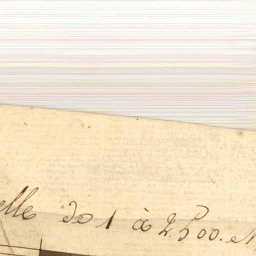 elle de 1 à 2.500. M